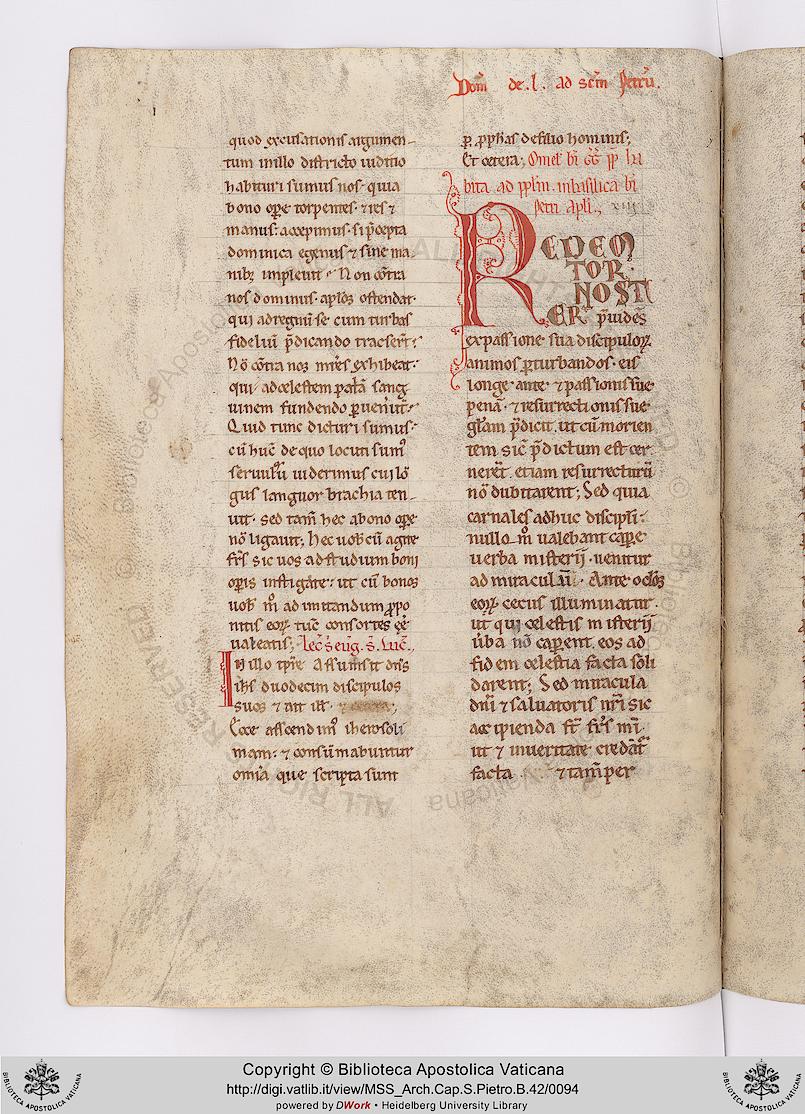 Dom̄ de .l. ad scm̄ Petrū.
quod excusationis argumen-
tum in illo districto iuditio
habituri sumus nos quia
bono ope torpentes ⁊ res ⁊
manus accepimus si p̄cepta
dominica egenus ⁊ sine ma
nibꝫ impleuit. Non cōtra
nos dominus aplōs ostendat
qui ad regnū se cum turbas
fideliū p̄dicando traxerīt.
Nō cōtra nos mr̄es exhibeat
qui ad celestem patͥā sang
uinem fundendo ꝑuenīut.
Quid tunc dicturi sumus
cū hūc de quo locuti sumꝰ
seruulū uiderimus cui lō
gus languor brachia ten
uit. sed tam̄ hec a bono ope
nō ligauit; hec uobꝭ cū agite
fr̄s sic uos ad studium boni
opis instigāte ut cū bonos
uobꝭ m̄ ad imitandum ꝓpo
nitis eoꝝ tūc consortes eē
ualeatis; Lec̄ s̄ eug̃. s̄. Luc̄.
In illo tp̄re Assumsit dn̄s
ih̄s duodecim discipulos
suos ⁊ ait ill̄. ⁊ cetera;
Ecce ascendimꝰ iherosoli
mam. ⁊ consūmabuntur
omīa que scripta sunt
ꝑ ꝓphās de filio hominis;
Et cetera; Omel̄ bī GḠ pp̄ ha
bita ad pp̄lm̄ in basilica bī
Petri apl̄i. XIII
REDEM
TOR
NOST
ER p̄uidēs
ex passione sua discipuloꝝ
animos ꝑturbandos eis
longe ante ⁊ passionis sue
penā ⁊ resurrectionis sue
glām p̄dicit ut cū morien
tem sicͣ p̄dictum est cer
nerēt. etiam resurrecturū
nō dubitarent; Sed quia
carnales adhuc discipli
nullo m̊ ualebant caꝑe
uerba misterij uenitur
ad miraculū. Ante oclōs
eoꝝ cecus illuminatur.
ut qui celestis misterij
ūba nō caꝑent eos ad
fidem celestia facta soli
darent; Sed miracula
dnī ⁊ saluatoris nrī sic
accipienda sī fr̄s mī
ut ⁊ in ueritate credāt̄
facta ⁊ tam̄ per
Copyright © Biblioteca Apostolica Vaticana
http://digi.vatlib.it/view/MSS_Arch.Cap.S.Pietro.B.42/0094
powered by DWork • Heidelberg University Library